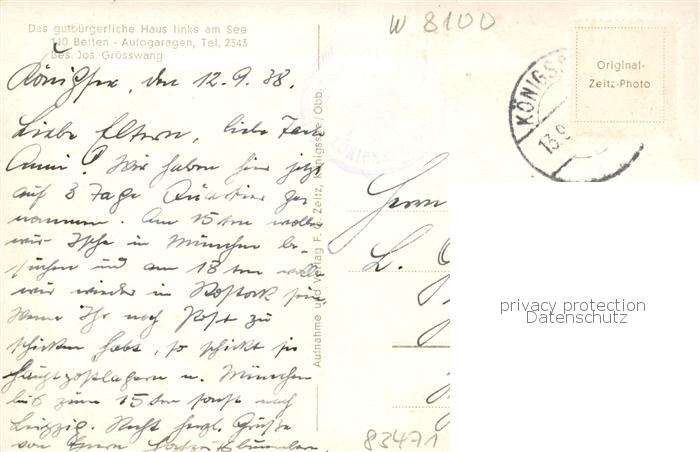 Das gutbürgerliche Haus links am See
110 Betten - Autogaragen, Tel. 2343
Bes. Jos. Grösswang
W 8100
Königssee, den 12.9.38.
Liebe Eltern, liebe Tante
Anni! Wir haben hier jetzt
auf 3 Tage Quartier ge-
nommen. Am 15ten wollen
wir Ilse in München be-
suchen und am 18ten wollen
wir wieder in Rostock sein.
Wenn Ihr noch Post zu
schicken habt, so schickt sie
hauptpostlagernd n. München
bis zum 15ten sonst nach
Leipzig. Recht herzl. Grüße
von Euern
Aufnahme und Verlag F. G. Zeitz, Königssee/Obb.
KÖNIGSS
13.9
Original-
Zeitz-Photo
Herrn
L.
privacy protection
Datenschutz
83471